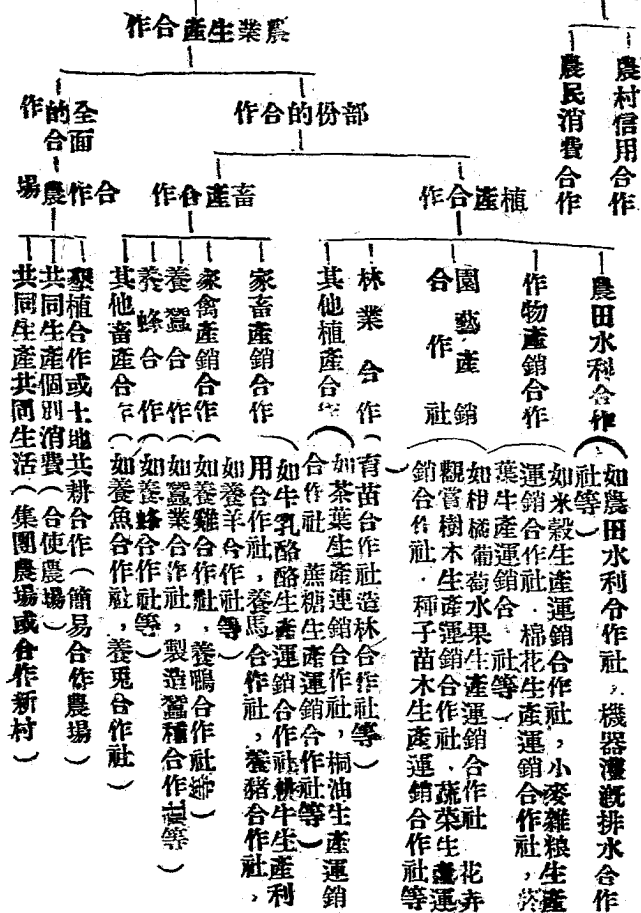 農村信用合作
農民消費合作
農業生產合作
部份的合作
全面的合作
植產合作
畜產合作
合作農場
農田水利合作（如農田水利合作社，機器灌溉排水合作
社等）
作物產銷合作（如米穀生產運銷合作社，小麥雜粮生產
運銷合作社．棉花生產運銷合作社，菸
葉生產運銷合　社等）
園藝產銷
合作社（如柑橘葡萄水果生產運銷合作社　花卉
觀賞樹木生產運銷合作社．蔬菜生產運
銷合作社．種子苗木生產運銷合作社等
）
林業合作（育苗合作社造林合作社等）
其他植產合作（如茶葉生產運銷合作社，桐油生產運銷
合作社　蔗糖生產運銷合作社等）
家畜產銷合作（如牛乳酪酪生產運銷合作社耕牛生產利
用合作社，養馬合作社，養猪合作社，
如養羊合作社等）
家禽產銷合作（如養雞合作社，養鴨合作社等）
養蠶合作（如蠶業合作社，製造蠶種合作社等）
養蜂合作（如養蜂合作社等）
其他畜產合作（如養魚合作社，養兎合作社）
墾植合作或土地共耕合作（簡易合作農場）
共同生產個別消費（合使農場）
共同生產共同生活（集團農場或合作新村）